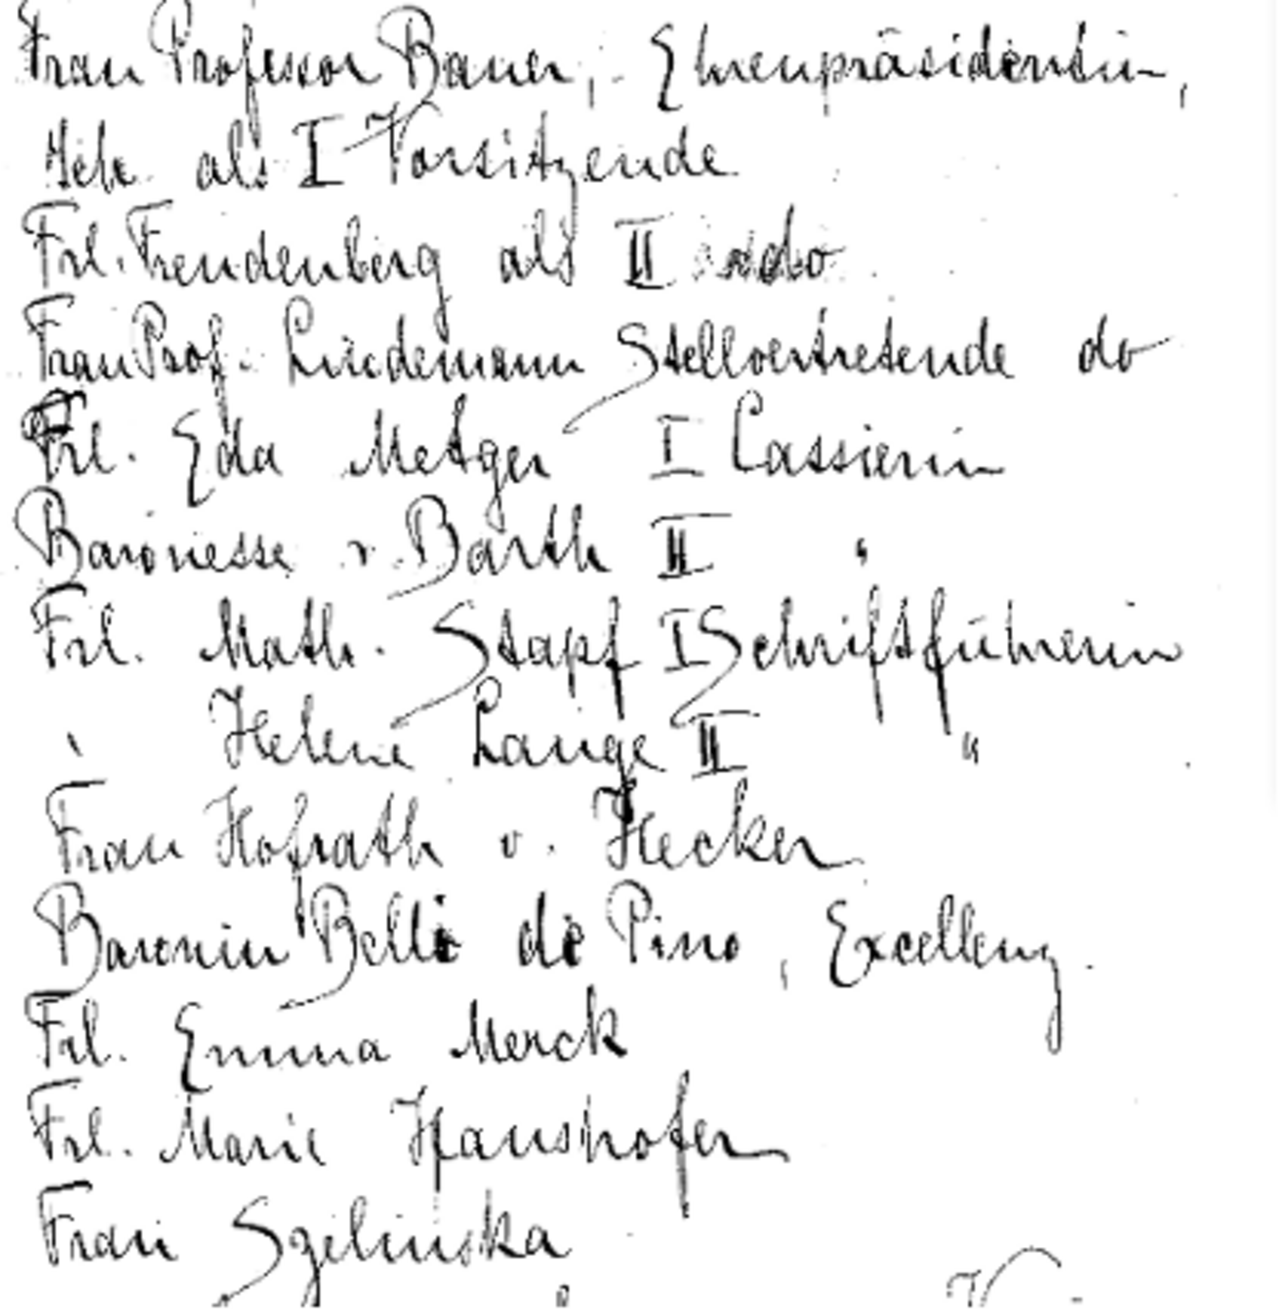 Frau Professor Bauer, Ehrenpräsidentin,
Ich als I Vorsitzende
Frl. Freudenberg als II do
Frau Prof. Lindemann Stellvertretende do
Frl. Eda Metzger I Cassierin
Baronesse v. Barth II "
Frl. Math. Stapf I Schriftführerin
" Helene Lange II "
Frau Hofrath v. Hecker
Baronin Belli de Pino, Excellenz.
Frl. Emma Merck
Frl. Marie Haushofer
Frau Szelinska